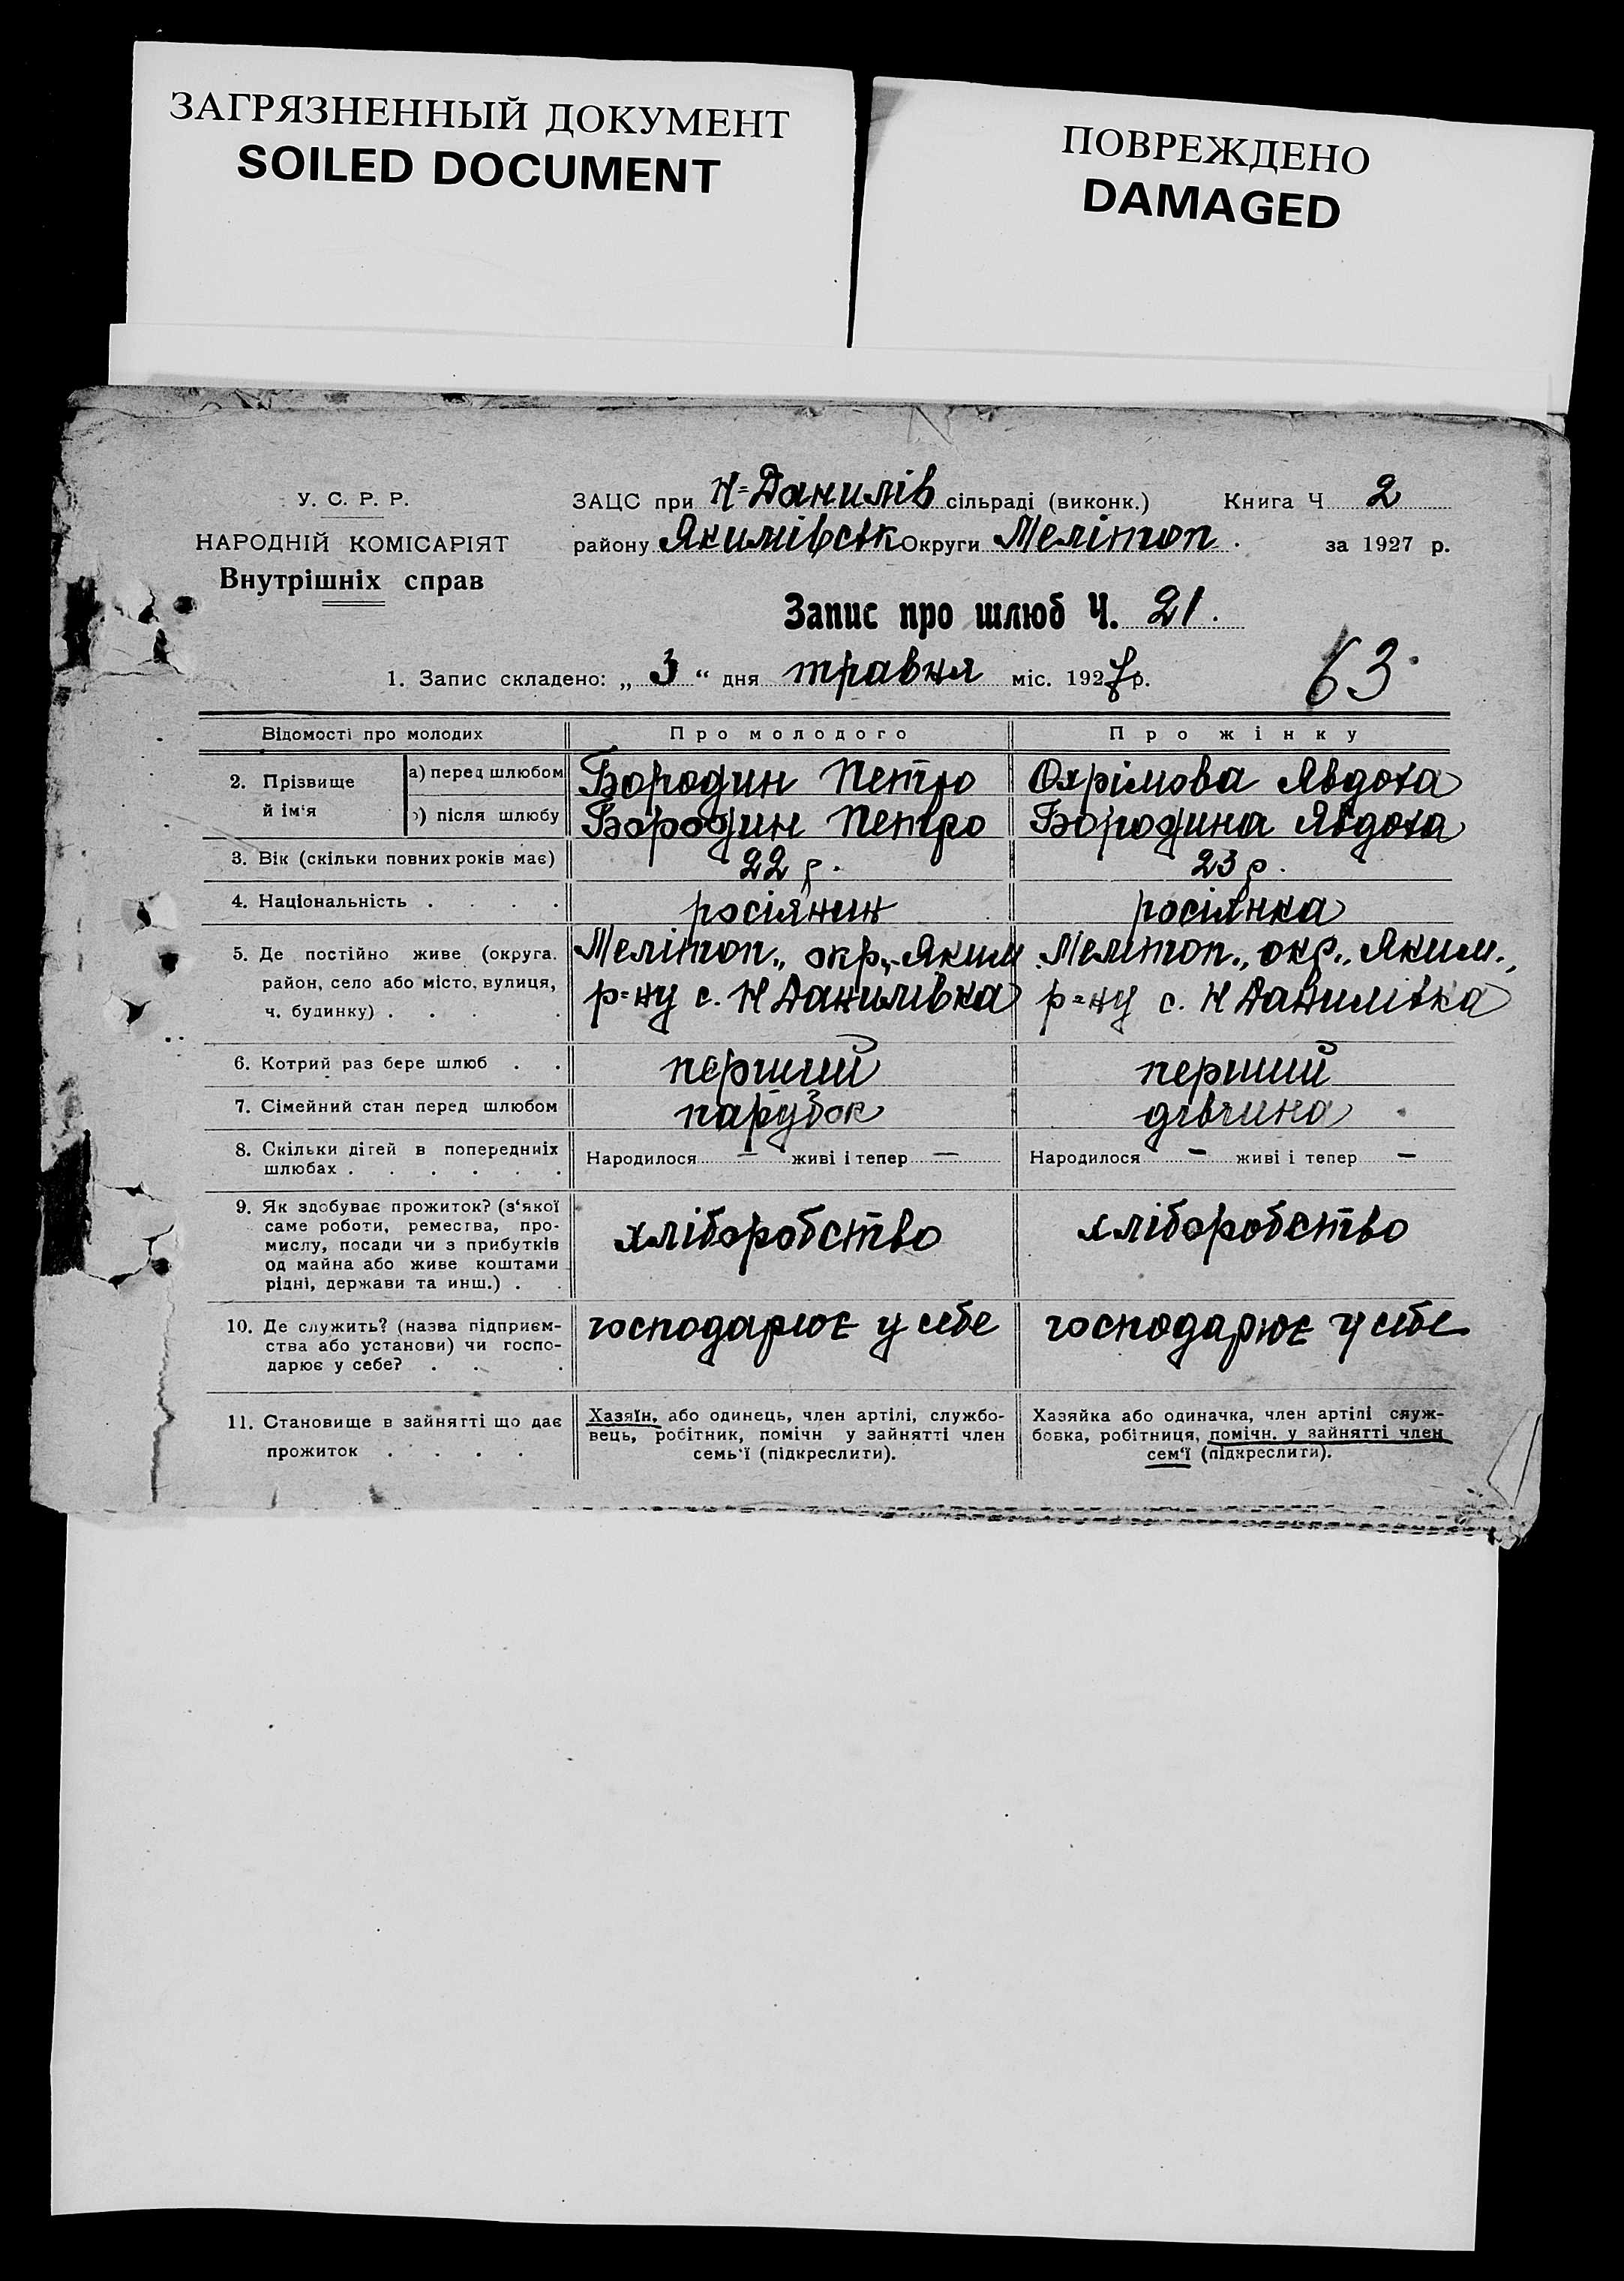 ЗАГРЯЗНЕННЫЙ ДОКУМЕНТ
SOILED DOCUMENT
ПОВРЕЖДЕНО
DAMAGED
У. С. Р. Р.
НАРОДНІЙ КОМІСАРІЯТ
Внутрішніх справ
ЗАЦС при Н-Данилів сільраді (виконк.) Книга Ч 2
району Якимівськ Округи Мелітоп. за 1927 р.
Запис про шлюб Ч. 21.
1. Запис складено: „ 3 “ дня травня міс. 1927 р.
63
Відомості про молодих Про молодого Про жінку
2. Прізвище й ім'я а) перед шлюбом Бородин Петро Охрімова Явдоха
б) після шлюбу Бородин Петро Бородина Явдоха
3. Вік (скільки повних років має) 22 р. 23 р.
4. Національність . . . . росіянин росіянка
5. Де постійно живе (округа, Мелітоп., окр., Яким. Мелітоп., окр., Яким.,
район, село або місто, вулиця, р-ну с. Н Данилівка р-ну с. Н Данилівка
ч. будинку) . . . .
6. Котрий раз бере шлюб . . перший перший
7. Сімейний стан перед шлюбом парубок дівчина
8. Скільки дітей в попередніх
шлюбах . . . . . . Народилося — живі і тепер — Народилося — живі і тепер —
9. Як здобуває прожиток? (з'якої
саме роботи, ремества, про-
мислу, посади чи з прибутків хліборобство хліборобство
од майна або живе коштами
рідні, держави та инш.) . .
10. Де служить? (назва підприєм- господарює у себе господарює у себе
ства або установи) чи госпо-
дарює у себе? . . .
11. Становище в зайнятті що дає Хазяїн, або одинець, член артілі, службо- Хазяйка або одиначка, член артілі служ-
прожиток . . . . вець, робітник, помічн у зайнятті член бовка, робітниця, помічн. у зайнятті член
семь'ї (підкреслити). сем'ї (підкреслити).